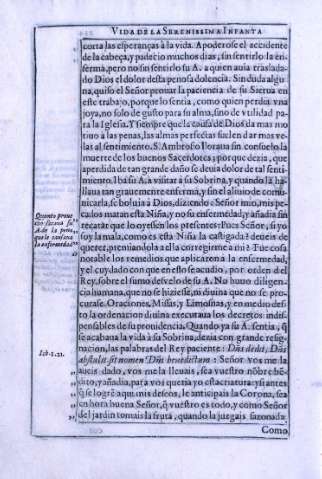 VIDA DE LA SERENISSIMA INFANTA
corta las esperanças à la vida. Apoderose el accidente
de la cabeça, y padeciò muchos dias, sin sentirlo la en-
ferma, pero no sin sentirlo su A. a quien auia traslada-
do Dios el dolor desta penosa dolencia. Sin duda algu-
na, quiso el Señor prouar la paciencia de su Sierua en
este trabajo, porque lo sentia, como quien perdia vna
joya, no solo de gusto para su alma, sino de vtilidad pa-
ra la Iglesia. Y siempre que la causa de Dios da mas mo-
tiuo a las penas, las almas perfectas suelen dar mas ve-
las al sentimiento. S. Ambrosio lloraua sin consuelo la
muerte de los buenos Sacerdotes; porque dezia, que
a perdida de tan grande daño se deuia dolor de tal senti-
miento. Iba su A. a visitar a su Sobrina, y quando la ha-
llaua tan grauemente enferma, y sin el aliuio de comu-
nicarla, se boluia a Dios, diziendo: Señor mio, mis pe-
cados matan esta Niña, y no su enfermedad; y añadia sin
recatar que lo oyessen los presentes: Pues Señor, si yo
soy la mala, como es esta Niña la castigada? deueis de
querer, penandola a ella corregirme a mi? Fue cosa
notable los remedios que aplicaron a la enfermedad,
y el cuydado con que en esto se acudio, por orden del
Rey, sobre el sumo desvelo de su A. No huuo diligen-
cia humana, que no se hiziesse, ni diuina que no se pro-
curase. Oraciones, Missas, y Limosnas, y en medio des-
to la ordenacion diuina executaua los decretos indis-
pensables de su prouidencia. Quando ya su A. sentia, q̃
se acabaua la vida à su Sobrina, dezia con grande resig-
nacion, las palabras del Rey paciente: Dñs dedit, Dñs
abstulit sit nomen Dñi benedictum: Señor vos me la
aueis dado, vos me la lleuais, sea vuestro nõbre bẽ-
dito, y añadia, para vos queria yo esta criatura; y si antes
q̃ se logrẽ aqui mis deseos, le anticipais la Corona, sea
en hora buena Señor, q̃ vuestro es todo, y como Señor
del jardin tomais la fruta, quando la juzgais sazonada.
Como
Quanto prouò
su A. de la pena,
la enfermedad
Iob. 1. 21.